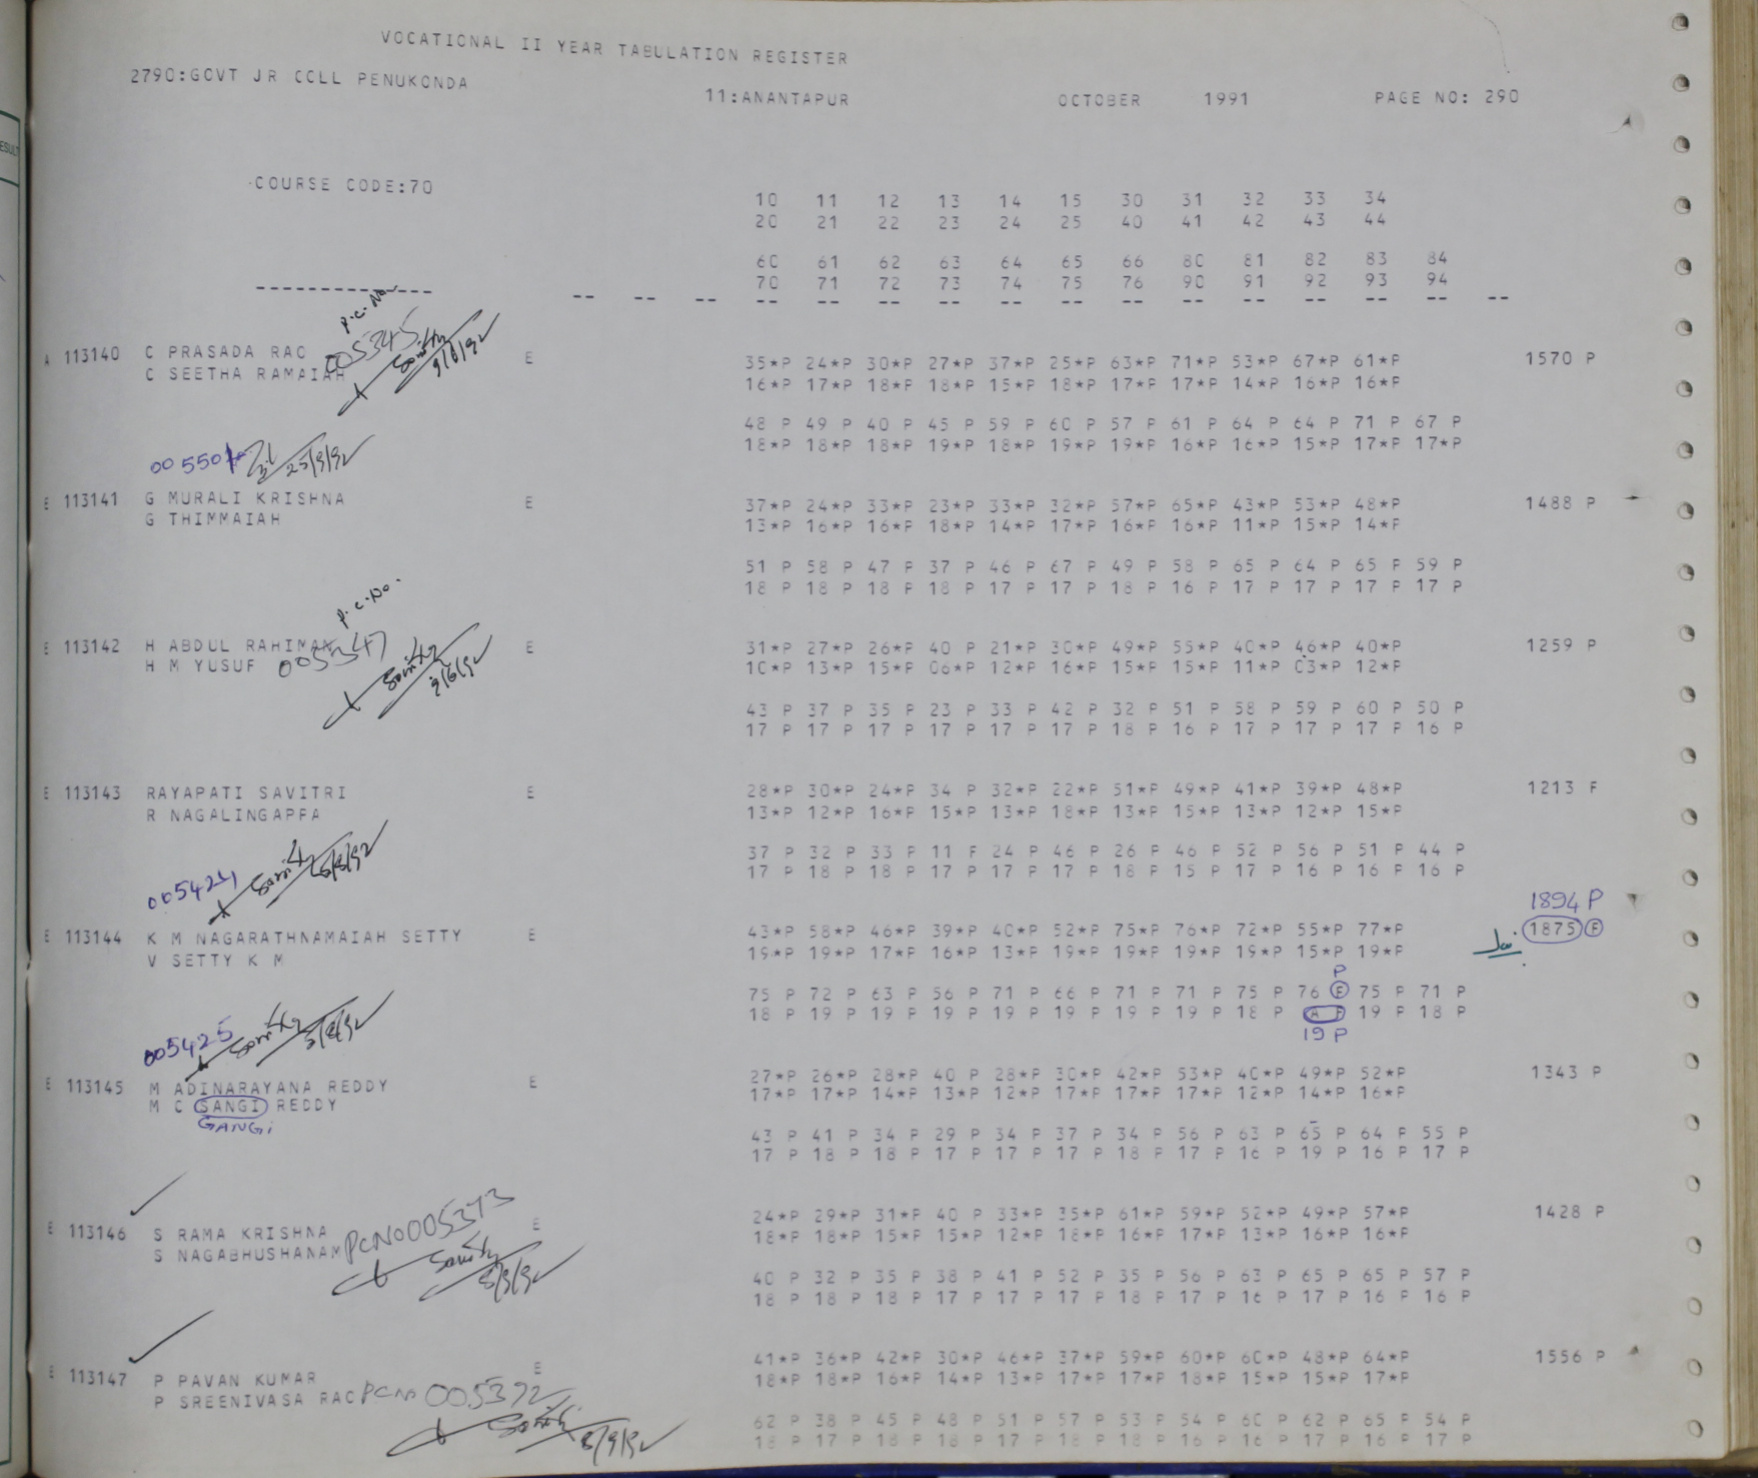 VOCATIONAL II YEAR TABULATION REGISTER
2790:GOVT JR COLL PENUKONDA
11:ANANTAPUR OCTOBER 1991 PAGE NO: 290
COURSE CODE:70
10 11 12 13 14 15 30 31 32 33 34
20 21 22 23 24 25 40 41 42 43 44
60 61 62 63 64 65 66 80 81 82 83 84
70 71 72 73 74 75 76 90 91 92 93 94
-------------- -- -- -- -- -- -- -- -- -- -- -- -- -- -- -- --
P.C.No
005345
9/6/92
A 113140 C PRASADA RAO E 35*P 24*P 30*P 27*P 37*P 25*P 63*P 71*P 53*P 67*P 61*P 1570 P
C SEETHA RAMAIAH 16*P 17*P 18*P 18*P 15*P 18*P 17*P 17*P 14*P 16*P 16*P
48 P 49 P 40 P 45 P 59 P 60 P 57 P 61 P 64 P 64 P 71 P 67 P
18*P 18*P 18*P 19*P 18*P 19*P 19*P 16*P 16*P 15*P 17*P 17*P
00550 25/9/92
E 113141 G MURALI KRISHNA E 37*P 24*P 33*P 23*P 33*P 32*P 57*P 65*P 43*P 53*P 48*P 1488 P
G THIMMAIAH 13*P 16*P 16*P 18*P 14*P 17*P 16*P 16*P 11*P 15*P 14*P
51 P 58 P 47 P 37 P 46 P 67 P 49 P 58 P 65 P 64 P 65 P 59 P
18 P 18 P 18 P 18 P 17 P 17 P 18 P 16 P 17 P 17 P 17 P 17 P
P.C.No.
E 113142 H ABDUL RAHIMAN E 31*P 27*P 26*P 40 P 21*P 30*P 49*P 55*P 40*P 46*P 40*P 1259 P
H M YUSUF 005347 9/6/92 10*P 13*P 15*P 06*P 12*P 16*P 15*P 15*P 11*P 03*P 12*P
43 P 37 P 35 P 23 P 33 P 42 P 32 P 51 P 58 P 59 P 60 P 50 P
17 P 17 P 17 P 17 P 17 P 17 P 18 P 16 P 17 P 17 P 17 P 16 P
E 113143 RAYAPATI SAVITRI E 28*P 30*P 24*P 34 P 32*P 22*P 51*P 49*P 41*P 39*P 48*P 1213 F
R NAGALINGAPPA 13*P 12*P 16*P 15*P 13*P 18*P 13*P 15*P 13*P 12*P 15*P
37 P 32 P 33 P 11 F 24 P 46 P 26 P 46 P 52 P 56 P 51 P 44 P
17 P 18 P 18 P 17 P 17 P 17 P 18 P 15 P 17 P 16 P 16 P 16 P
005424
1894 P
E 113144 K M NAGARATHNAMAIAH SETTY E 43*P 58*P 46*P 39*P 40*P 52*P 75*P 76*P 72*P 55*P 77*P 1875 F
V SETTY K M 19*P 19*P 17*P 16*P 13*P 19*P 19*P 19*P 19*P 15*P 19*P
P
75 P 72 P 63 P 56 P 71 P 66 P 71 P 71 P 75 P 76 F 75 P 71 P
18 P 19 P 19 P 19 P 19 P 19 P 19 P 19 P 18 P A F 19 P 18 P
19 P
005425
E 113145 M ADINARAYANA REDDY E 27*P 26*P 28*P 40 P 28*P 30*P 42*P 53*P 40*P 49*P 52*P 1343 P
M C SANGI REDDY 17*P 17*P 14*P 13*P 12*P 17*P 17*P 17*P 12*P 14*P 16*P
GANGI
43 P 41 P 34 P 29 P 34 P 37 P 34 P 56 P 63 P 65 P 64 P 55 P
17 P 18 P 18 P 17 P 17 P 17 P 18 P 17 P 16 P 19 P 16 P 17 P
E 113146 S RAMA KRISHNA E 24*P 29*P 31*P 40 P 33*P 35*P 61*P 59*P 52*P 49*P 57*P 1428 P
S NAGABHUSHANAM PCNO005373 18*P 18*P 15*P 15*P 12*P 18*P 16*P 17*P 13*P 16*P 16*P
40 P 32 P 35 P 38 P 41 P 52 P 35 P 56 P 63 P 65 P 65 P 57 P
18 P 18 P 18 P 17 P 17 P 17 P 18 P 17 P 16 P 17 P 16 P 16 P
E 113147 P PAVAN KUMAR E 41*P 36*P 42*P 30*P 46*P 37*P 59*P 60*P 60*P 48*P 64*P 1556 P
P SREENIVASA RAO PCNo 005372 18*P 18*P 16*P 14*P 13*P 17*P 17*P 18*P 15*P 15*P 17*P
62 P 38 P 45 P 48 P 51 P 57 P 53 P 54 P 60 P 62 P 65 P 54 P
18 P 17 P 18 P 18 P 17 P 18 P 18 P 16 P 16 P 17 P 16 P 17 P